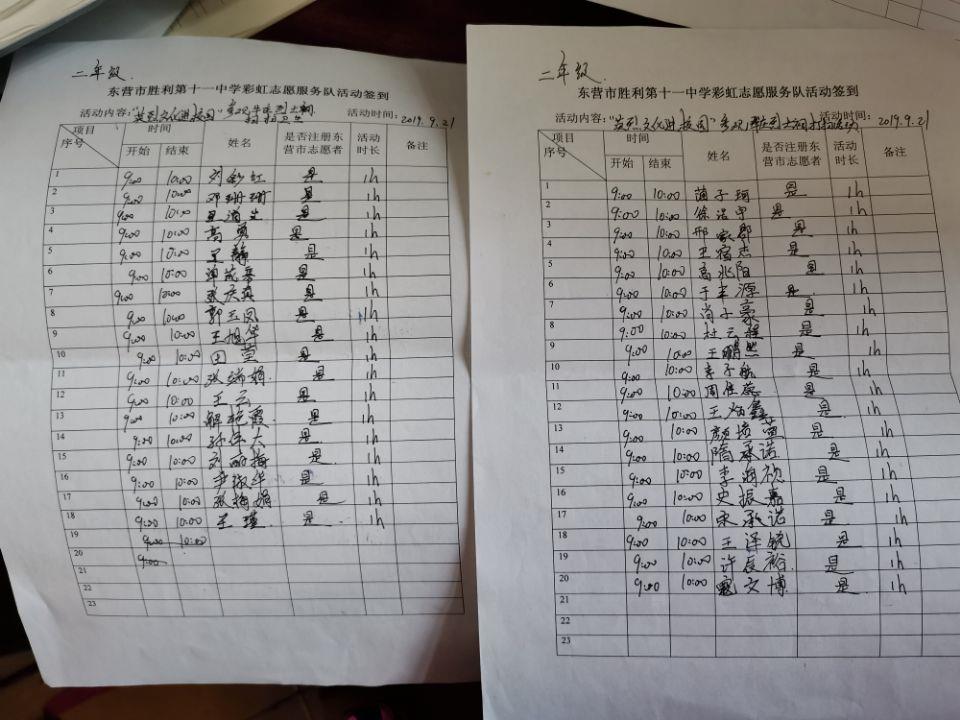 二年级.
东营市胜利第十一中学彩虹志愿服务队活动签到
活动内容: 活动时间: 2019.9.21
项目 序号 时间 开始 结束 姓名 是否注册东营市志愿者 活动时长 备注
1 9:00 10:00 刘彩虹 是 1h
2 9:00 10:00 邓珊珊 是 1h
3 9:00 10:00 是 1h
4 9:00 10:00 高勇 是 1h
5 9:00 10:00 王静 是 1h
6 9:00 10:00 是 1h
7 9:00 10:00 张庆燕 是 1h
8 9:00 10:00 郭玉凤 是 1h
9 9:00 10:00 王旭华 是 1h
10 9:00 10:00 田莹 是 1h
11 9:00 10:00 张瑞娟 是 1h
12 9:00 10:00 王云 是 1h
13 9:00 10:00 解艳霞 是 1h
14 9:00 10:00 孙伟大 是 1h
15 9:00 10:00 刘丽梅 是 1h
16 9:00 10:00 尹淑华 是 1h
17 9:00 10:00 张梅娟 是 1h
18 9:00 10:00 王瑾 是 1h
19 9:00 10:00
20 9:00
21
22
23
二年级.
东营市胜利第十一中学彩虹志愿服务队活动签到
活动内容: 活动时间: 2019.9.21
项目 序号 时间 开始 结束 姓名 是否注册东营市志愿者 活动时长 备注
1 9:00 10:00 蔺子珂 是 1h
2 9:00 10:00 徐浩甲 是 1h
3 9:00 10:00 邢家郡 是 1h
4 9:00 10:00 王宿杰 是 1h
5 9:00 10:00 高兆阳 是 1h
6 9:00 10:00 于丰源 是 1h
7 9:00 10:00 肖子豪 是 1h
8 9:00 10:00 赵云程 是 1h
9 9:00 10:00 王鹏然 是 1h
10 9:00 10:00 李子航 是 1h
11 9:00 10:00 周佳蕊 是 1h
12 9:00 10:00 王炳鑫 是 1h
13 9:00 10:00 是 1h
14 9:00 10:00 隋承诺 是 1h
15 9:00 10:00 李润祯 是 1h
16 9:00 10:00 史振嘉 是 1h
17 9:00 10:00 宋承诺 是 1h
18 9:00 10:00 王泽毓 是 1h
19 9:00 10:00 许辰裕 是 1h
20 9:00 10:00 寇文博 是 1h
21
22
23